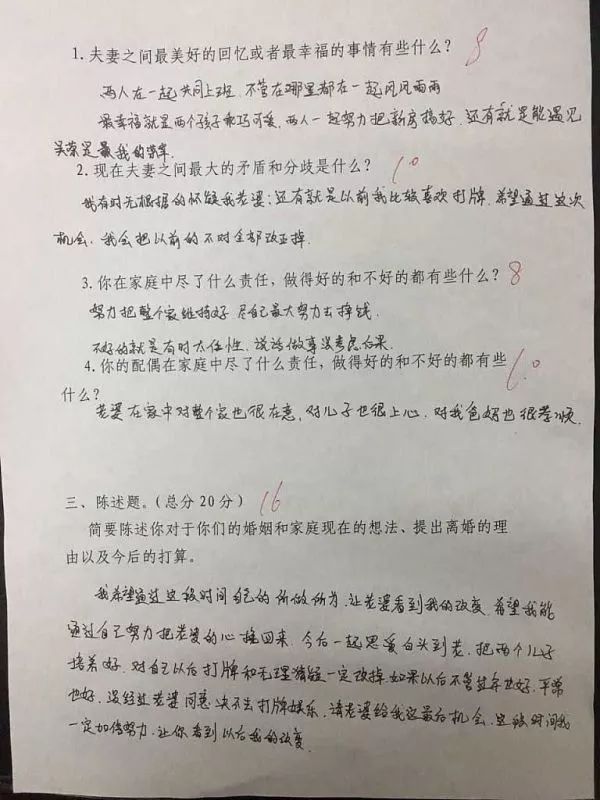 1. 夫妻之间最美好的回忆或者最幸福的事情有些什么？ 8
两人在一起共同上班，不管在哪里都在一起风风雨雨
最幸福就是两个孩子乖巧可爱，两人一起努力把新房搞好，还有就是能遇见
是最我的
2. 现在夫妻之间最大的矛盾和分歧是什么？ 10
我有时无根据的怀疑我老婆；还有就是以前我比较喜欢打牌，希望通过这次
机会，我会把以前的不对全部改正掉．
3. 你在家庭中尽了什么责任，做得好的和不好的都有些什么？ 8
努力把整个家维持好 尽自己最大努力去挣钱．
不好的就是有时太任性，说话做事没考虑后果．
4. 你的配偶在家庭中尽了什么责任，做得好的和不好的都有些 10
什么？
老婆在家中对整个家也很在意，对儿子也很上心，对我爸妈也很孝顺．
三、陈述题。（总分20分） 16
简要陈述你对于你们的婚姻和家庭现在的想法、提出离婚的理
由以及今后的打算。
我希望通过这段时间自己的所做所为，让老婆看到我的改变，希望我能
通过自己努力把老婆的心挽回来，今后一起恩爱白头到老，把两个儿子
培养好，对自己以后打牌和无理猜疑一定改掉，如果以后不管过年也好，平常
也好，没经过老婆同意决不去打牌娱乐，请老婆给我这最后机会，这段时间我
一定加倍努力，让你看到以后我的改变．